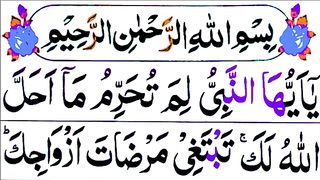 بِسْمِ اللهِ الرَّحْمٰنِ الرَّحِيْمِ
يٰۤاَيُّهَا النَّبِىُّ لِمَ تُحَرِّمُ مَاۤ اَحَلَّ
اللهُ لَكَ ۚ تَبْتَغِىْ مَرْضَاتَ اَزْوَاجِكَ ؕ